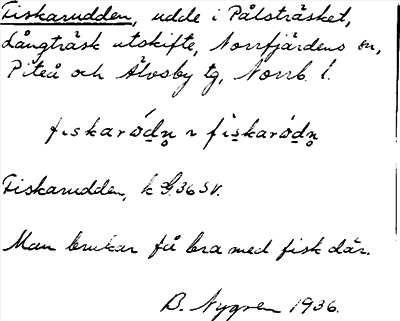 Fiskarudden, udde i Pålsträsket,
Långträsk utskifte, Norrfjärdens sn,
Piteå och Älvsby tg, Norrb. l.
fiskarúdn̥ ~ fiskarúdn̥
Fiskarudden, k G.36 SV.
Man brukar få bra med fisk där.
B. Nygren 1936.